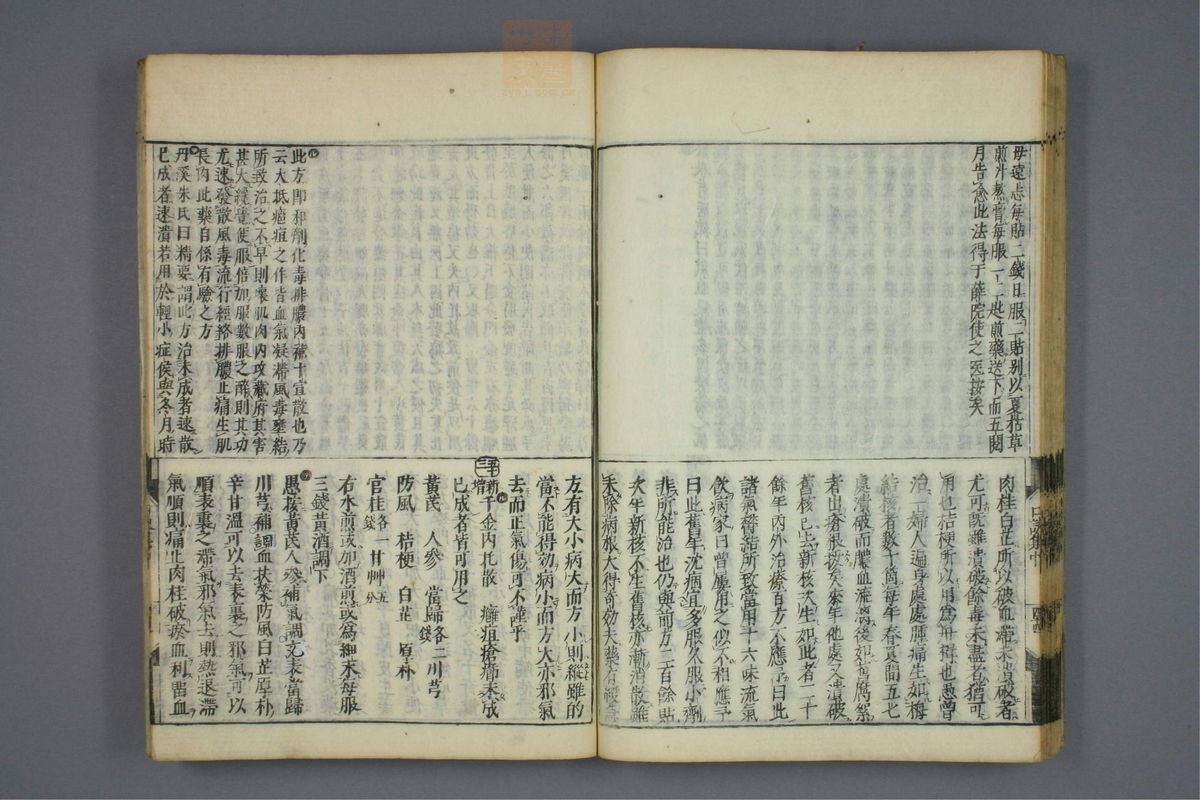 母遠志每貼二錢日服二貼別以夏枯草
煎汁熬膏每服一二匙煎藥送下而五閱
月告愈此法得于薛院使之医按矣
肉桂白芷所以破血滯未潰破者
尤可既雖潰破餘毒未盡者猶可
用也桔梗所以用為舟楫也愚曾
治一婦人遍身處處腫痛生如梅
結核者數十箇每年春夏間五七
處潰破而膿血流淌後如舊腐祭
者出瘡根拔矣來年他處又潰破
舊核已去新核次生如此者二十
餘年內外治療百方不應予曰此
諸氣欝結所致當用十六味流氣
飲病家曰曾屢用之似不相應予
曰此舊年沈痼宜多服久服小劑
非所能治也仍與前方二百餘貼
次年新核不生舊核亦漸消散雖
未除病根大得奇効夫藥有緩急
方有大小病大而方小則縱雖的
當不能得効病小而方大亦邪氣
去而正氣傷可不謹乎
新增 千金內托散 癰疽瘡癤未成
已成者皆可用之
黃芪 人參 當歸各二錢 川芎
防風 桔梗 白芷 厚朴
官桂各一錢 甘艸五分
右水煎或加酒煎或為細末每服
三錢黃酒調下
愚按黃芪人參補氣調充表當歸
川芎補調血扶榮防風白芷厚朴
辛甘溫可以去表裏之邪氣可以
順表裏之滯氣邪氣去則熱退滯
氣順則痛止肉桂破瘀血利畱血
此方即和劑化毒排膿內補十宣散也乃
云大抵瘡疽之作皆血氣凝滯風毒壅結
所致治之不早則裏肌肉內攻臟府其害
甚大纔覺便服倍加服數服之醉則其功
尤速發散風毒流行經絡排膿止痛生肌
長肉此藥自係有驗之方
丹溪朱氏曰精要謂此方治未成者速散
已成者速潰若用於輕小症候與冬月時